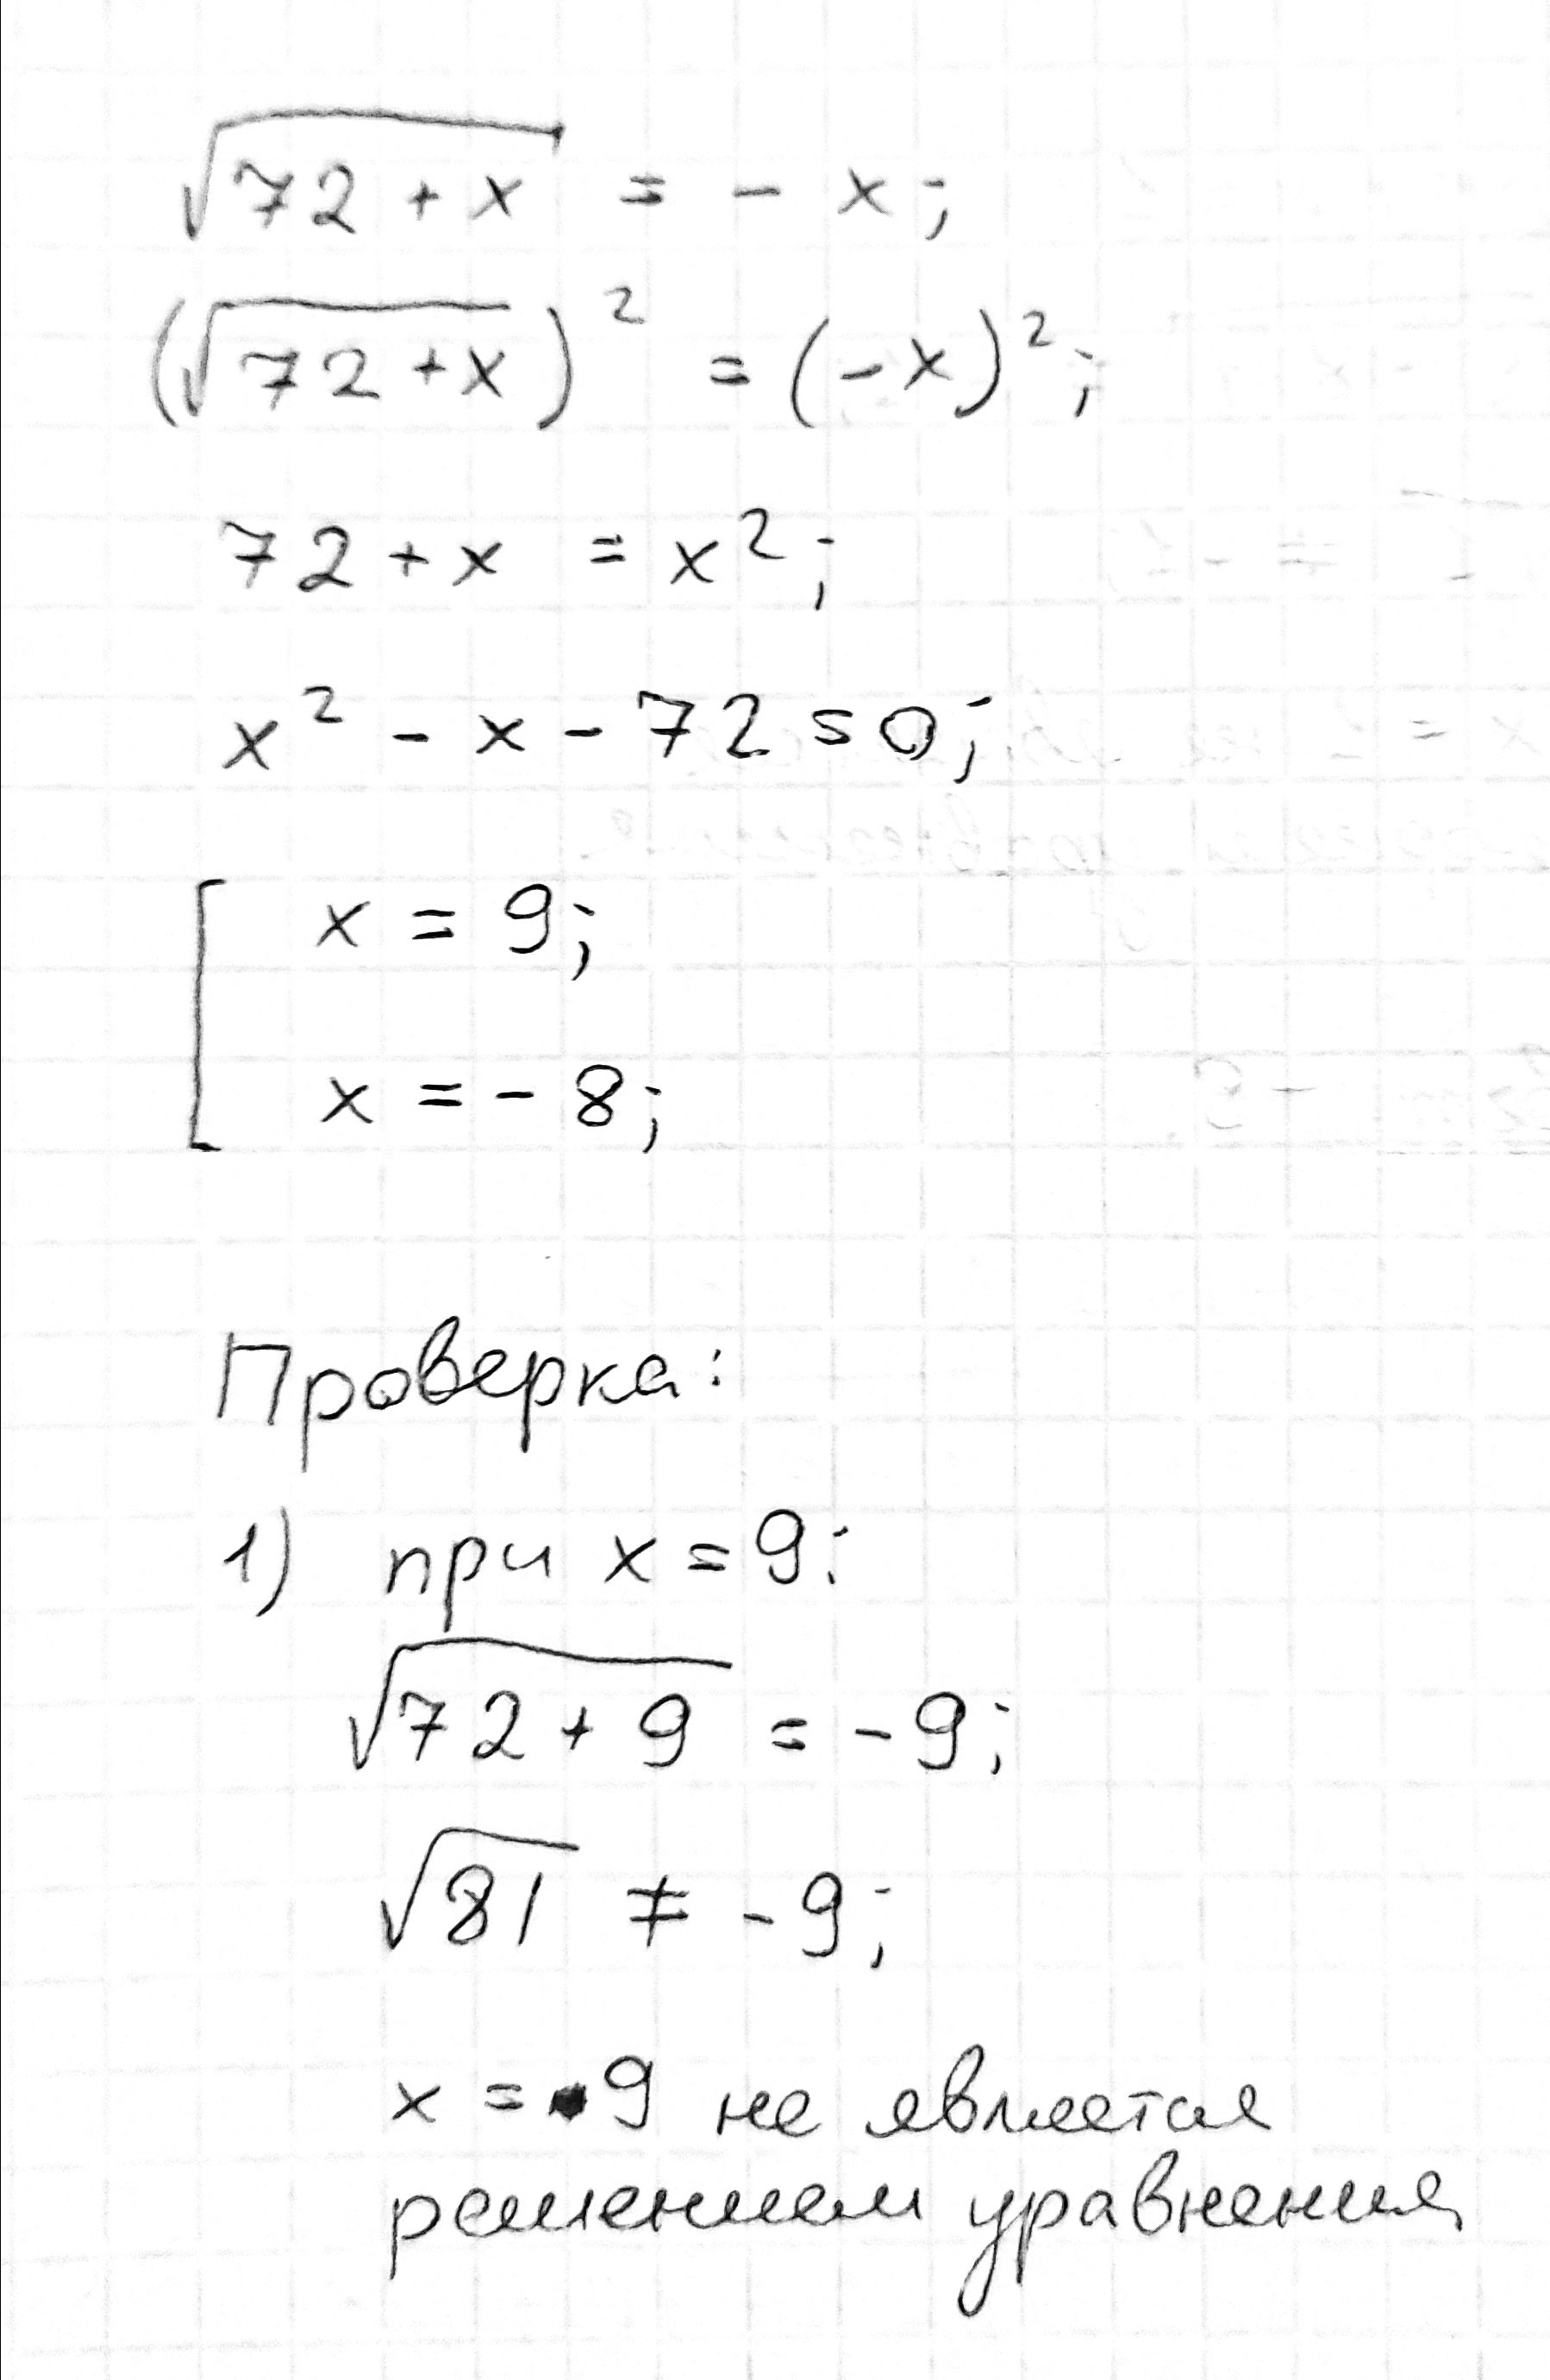 √72 + x = - x;
(√72 + x)² = (-x)²;
72 + x = x²;
x² - x - 72 = 0;
x = 9;
x = - 8;
Проверка:
1) при x = 9:
√72 + 9 = -9;
√81 ≠ -9;
x = 9 не является
решением уравнения